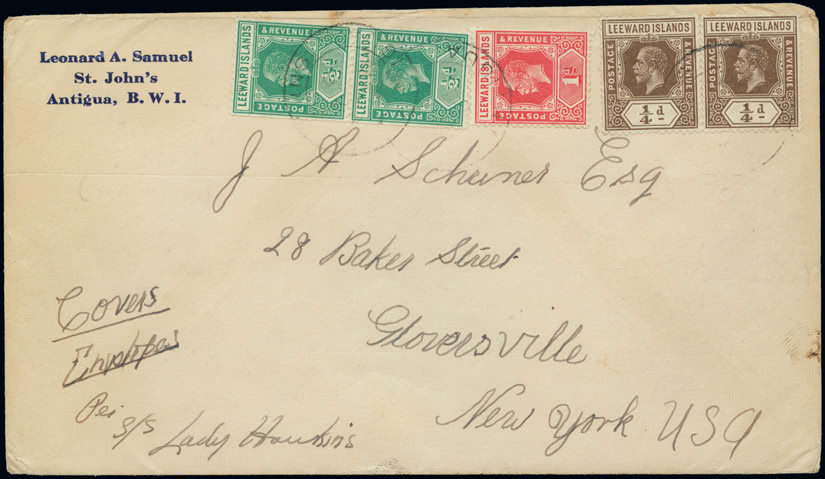 Leonard A. Samuel
St. John's
Antigua, B. W. I.
LEEWARD ISLANDS
& REVENUE
½d
POSTAGE
LEEWARD ISLANDS
& REVENUE
½d
POSTAGE
LEEWARD ISLANDS
& REVENUE
1d
POSTAGE
LEEWARD ISLANDS
POSTAGE
& REVENUE
¼d
LEEWARD ISLANDS
POSTAGE
& REVENUE
¼d
J A Schuner Esq
28 Baker Street
Gloversville
New York USA
Covers
Envelopes
Per
S/S Lady Hawkins